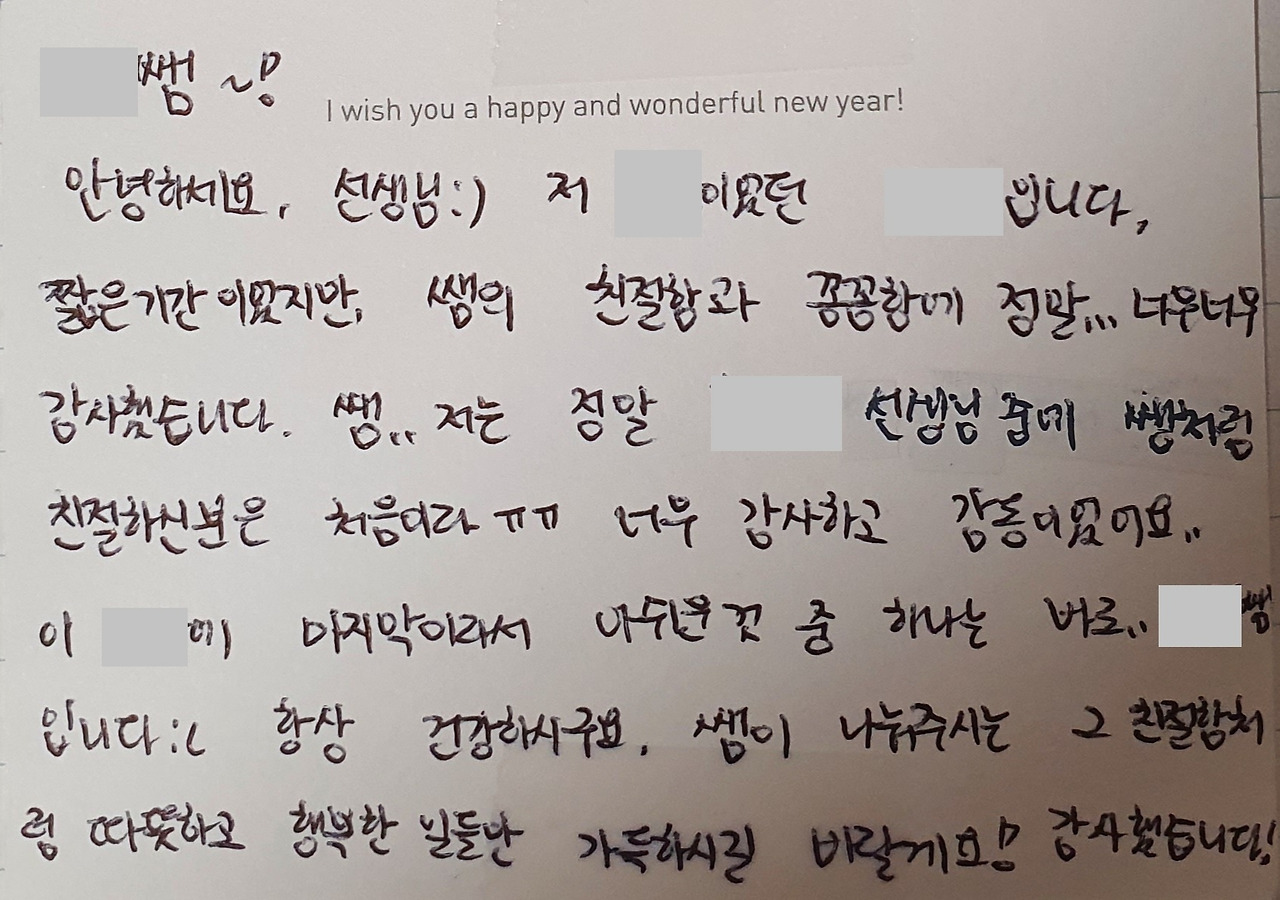 쌤~!
I wish you a happy and wonderful new year!
안녕하세요, 선생님:) 저 이었던 입니다,
짧은기간이었지만, 쌤의 친절함과 꼼꼼함에 정말... 너무너무
감사했습니다. 쌤.. 저는 정말 선생님 중에 쌤처럼
친절하신분은 처음이라 ㅠㅠ 너무 감사하고 감동이었어요..
이 에 마지막이라서 아쉬운 것 중 하나는 바로.. 쌤
입니다:( 항상 건강하시구요, 쌤이 나눠주시는 그 친절함처
럼 따뜻하고 행복한 일들만 가득하시길 바랄게요! 감사했습니다!